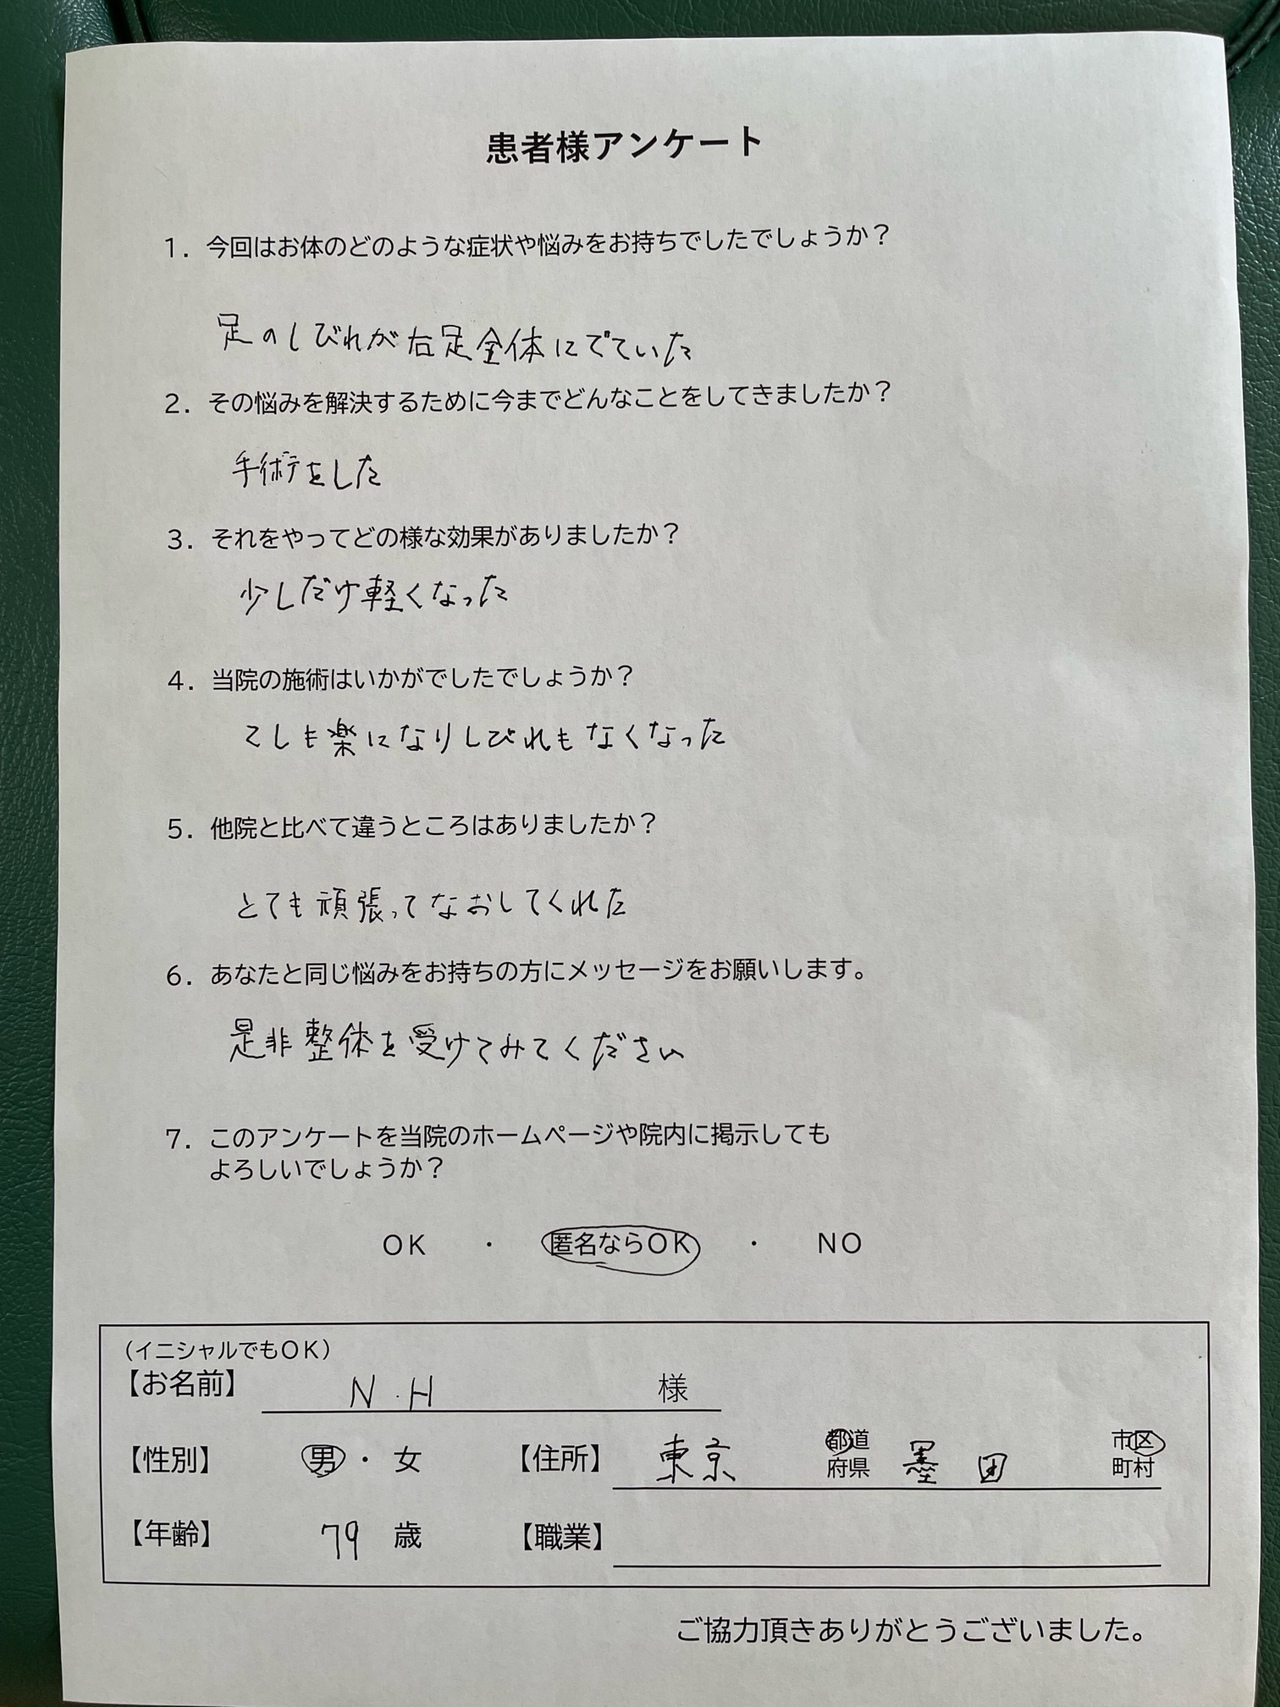 患者様アンケート
1．今回はお体のどのような症状や悩みをお持ちでしたでしょうか？
足のしびれが右足全体にでていた
2．その悩みを解決するために今までどんなことをしてきましたか？
手術をした
3．それをやってどの様な効果がありましたか？
少しだけ軽くなった
4．当院の施術はいかがでしたでしょうか？
とても楽になりしびれもなくなった
5．他院と比べて違うところはありましたか？
とても頑張ってなおしてくれた
6．あなたと同じ悩みをお持ちの方にメッセージをお願いします。
是非整体を受けてみてください
7．このアンケートを当院のホームページや院内に掲示しても
よろしいでしょうか？
OK ・ 匿名ならOK ・ NO
（イニシャルでもOK）
【お名前】 N.H 様
【性別】 男・女 【住所】 東京 都道府県 墨田 市区町村
【年齢】 79 歳 【職業】
ご協力頂きありがとうございました。